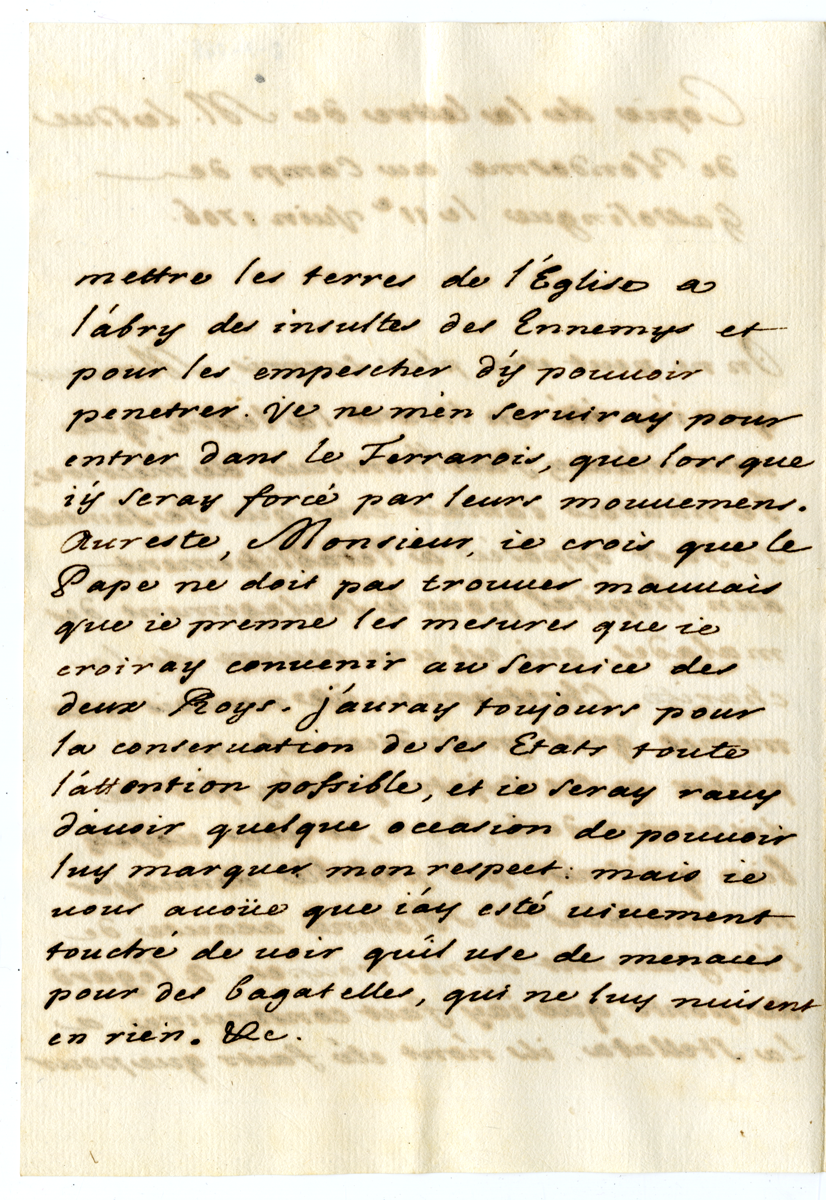 mettre les terres de l'Église a
l'ábry des insultes des Ennemys et
pour les empescher d'ÿ pouuoir
penetrer. Je ne m'en seruiray pour
entrer dans le Ferrarois, que lors que
i'ÿ seray forcé par leurs mouuemens.
Aureste, Monsieur, ie crois que le
Pape ne doit pas trouuer mauuais
que ie prenne les mesures que ie
croiray conuenir au seruice des
deux Roys. j'auray toujours pour
la conseruation de ses Etats toute
l'áttention possible, et ie seray rauy
d'auoir quelque occasion de pouuoir
luy marquer mon respect: mais ie
uous auoüe que i'áy esté uiuement
touché de uoir qu'il use de menaces
pour des bagatelles, qui ne luy nuisent
en rien. &c.